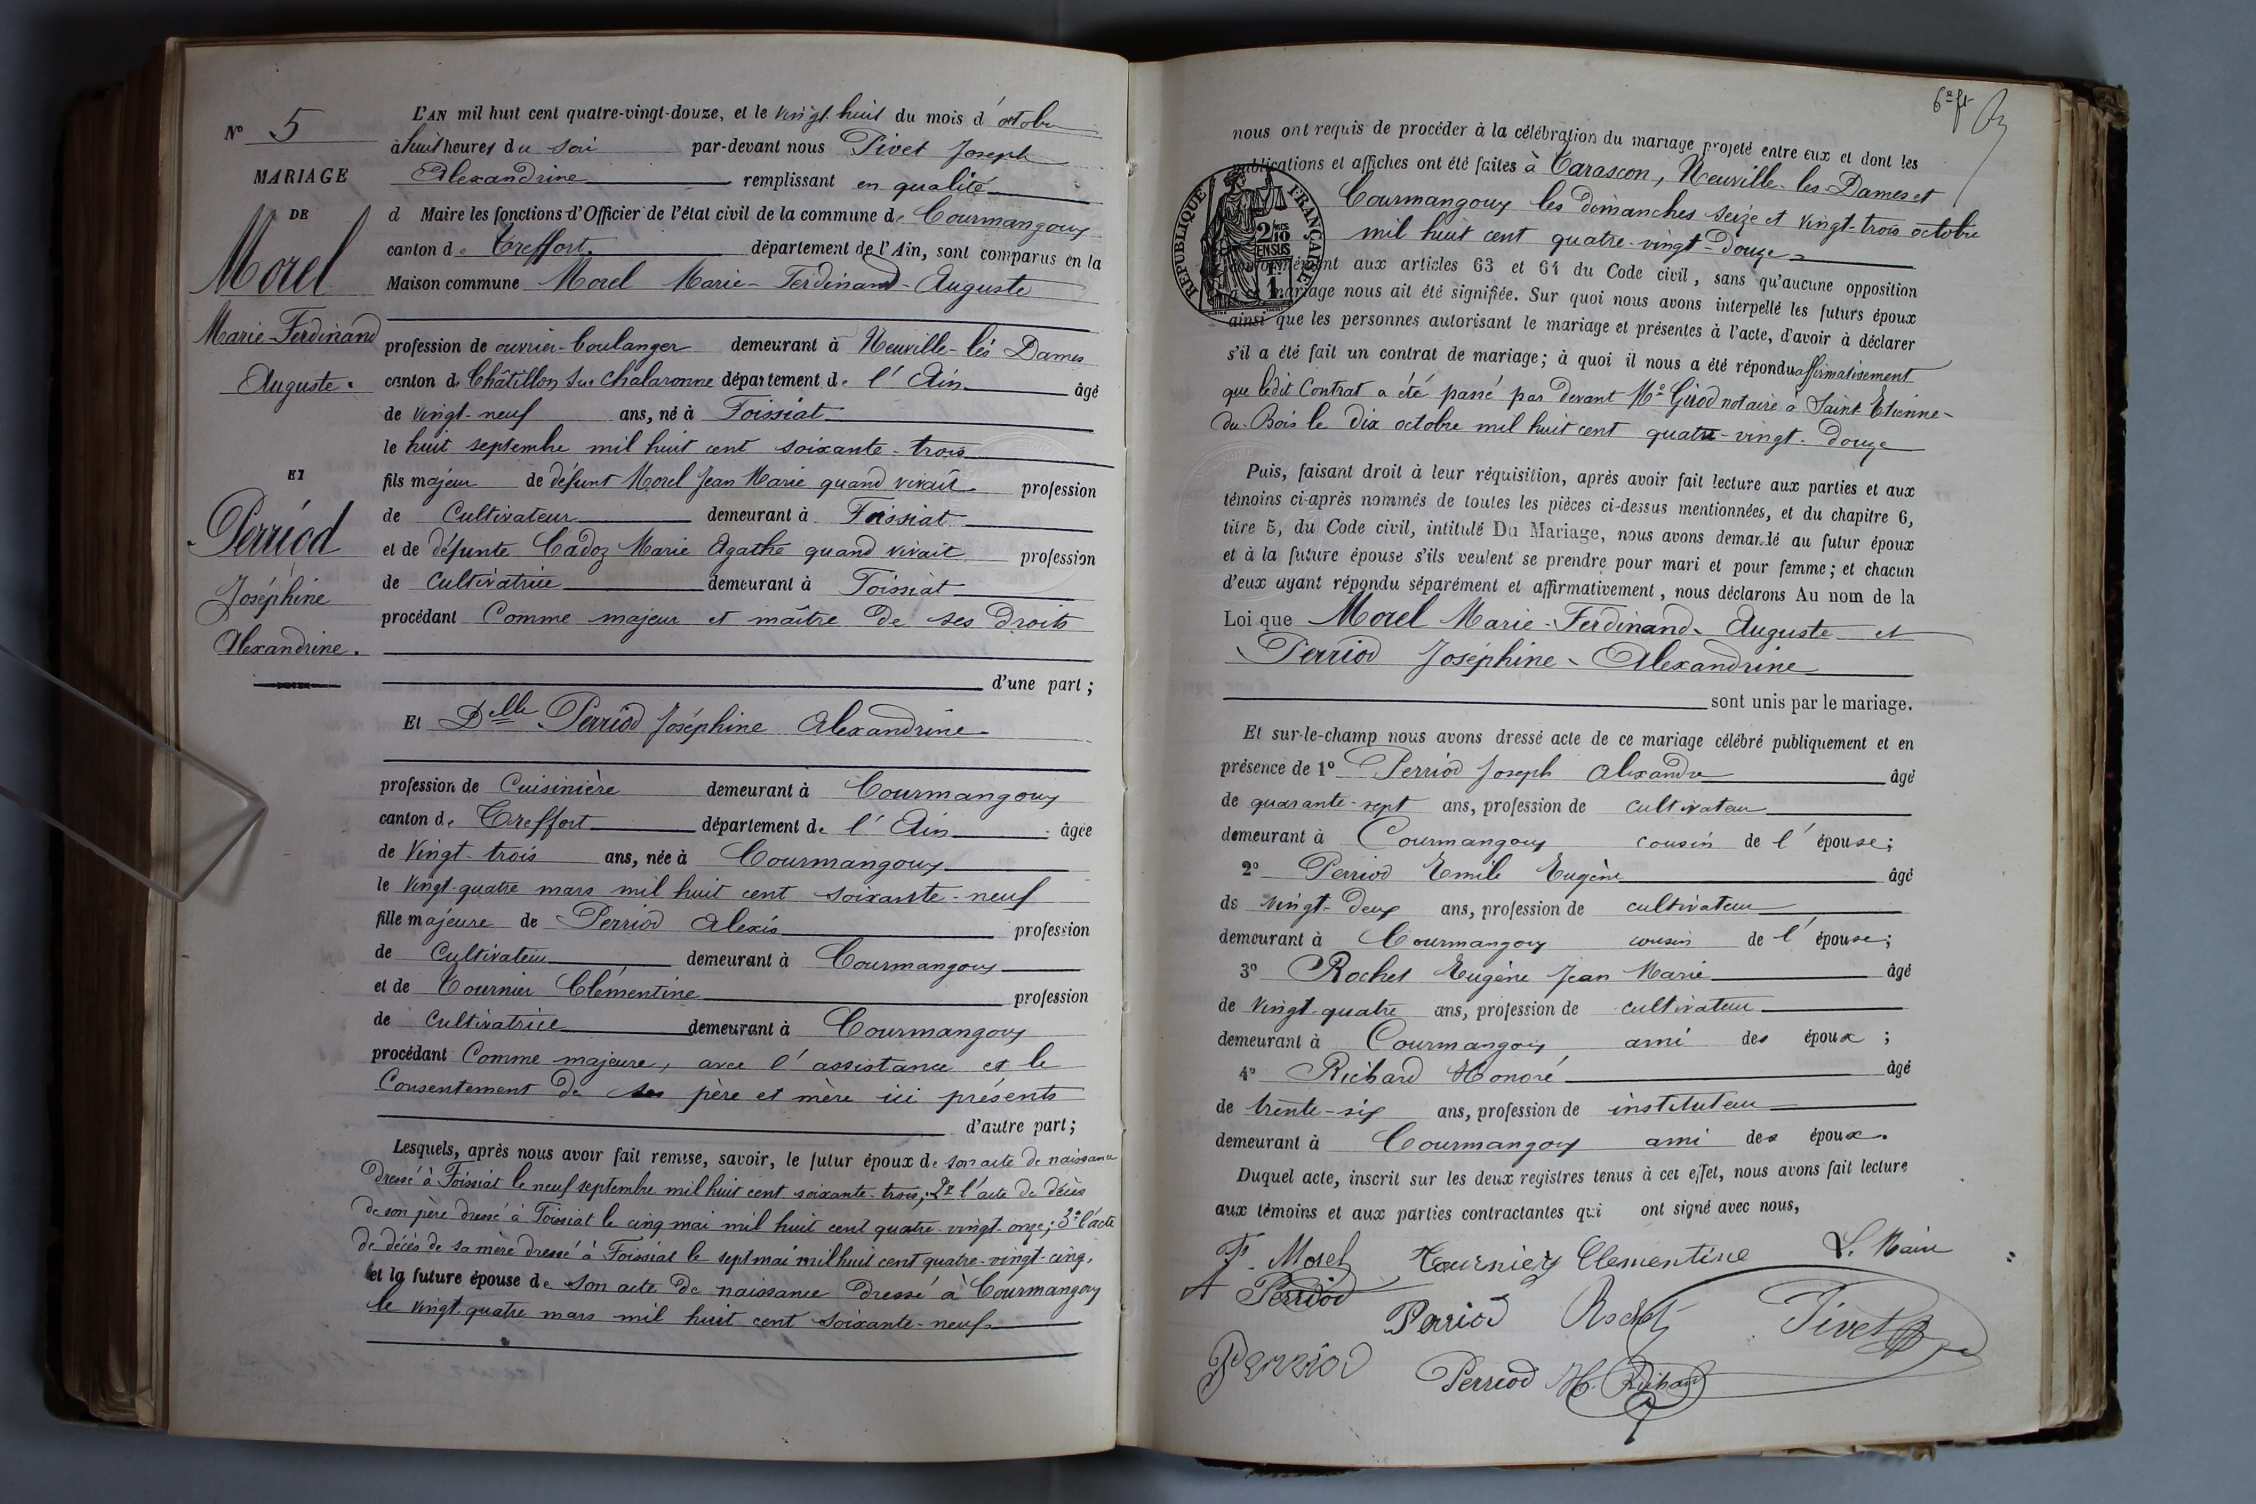 N° 5
MARIAGE
DE
Morel
Marie-Ferdinand
Auguste.
ET
Perriod
Joséphine
Alexandrine.
L'AN mil huit cent quatre-vingt-douze, et le vingt huit du mois d'octobre
à huit heures du soir par-devant nous Pivet Joseph
Alexandrine remplissant en qualité
d Maire les fonctions d'Officier de l'état civil de la commune de Courmangoux
canton de Treffort département de l'Ain, sont comparus en la
Maison commune Morel Marie-Ferdinand-Auguste
profession de ouvrier-boulanger demeurant à Neuville-lès Dames
canton de Châtillon sur Chalaronne département de l'Ain âgé
de vingt-neuf ans, né à Foissiat
le huit septembre mil huit cent soixante-trois
fils majeur de défunt Morel Jean Marie quand vivait profession
de Cultivateur demeurant à Foissiat
et de défunte Cadoz Marie Agathe quand vivait profession
de Cultivatrice demeurant à Foissiat
procédant Comme majeur et maître de ses droits
d'une part;
Et Delle Perriod Joséphine Alexandrine
profession de Cuisinière demeurant à Courmangoux
canton de Treffort département de l'Ain âgée
de Vingt-trois ans, née à Courmangoux
le Vingt-quatre mars mil huit cent soixante-neuf
fille majeure de Perriod Alexis profession
de Cultivateur demeurant à Courmangoux
et de Tournier Clémentine profession
de Cultivatrice demeurant à Courmangoux
procédant Comme majeure, avec l'assistance et le
Consentement de ses père et mère ici présents
d'autre part;
Lesquels, après nous avoir fait remise, savoir, le futur époux de son acte de naissance
dressé à Foissiat le neuf septembre mil huit cent soixante-trois; 2° l'acte de décès
de son père dressé à Foissiat le cinq mai mil huit cent quatre-vingt-onze; 3° l'acte
de décès de sa mère dressé à Foissiat le sept mai mil huit cent quatre-vingt-cinq,
et la future épouse de son acte de naissance dressé à Courmangoux
le vingt quatre mars mil huit cent soixante-neuf
nous ont requis de procéder à la célébration du mariage projeté entre eux et dont les
publications et affiches ont été faites à Tarascon, Neuville-les-Dames et
Courmangoux les dimanches seize et vingt-trois octobre
mil huit cent quatre-vingt-douze
conformément aux articles 63 et 64 du Code civil, sans qu'aucune opposition
à ce mariage nous ait été signifiée. Sur quoi nous avons interpellé les futurs époux
ainsi que les personnes autorisant le mariage et présentes à l'acte, d'avoir à déclarer
s'il a été fait un contrat de mariage; à quoi il nous a été répondu affirmativement
que ledit Contrat a été passé par devant Me Girod notaire à Saint Etienne-
du-Bois le dix octobre mil huit cent quatre-vingt-douze
RÉPUBLIQUE FRANÇAISE
2/10 EN SUS
1F
Puis, faisant droit à leur réquisition, après avoir fait lecture aux parties et aux
témoins ci-après nommés de toutes les pièces ci-dessus mentionnées, et du chapitre 6,
titre 5, du Code civil, intitulé Du Mariage, nous avons demandé au futur époux
et à la future épouse s'ils veulent se prendre pour mari et pour femme; et chacun
d'eux ayant répondu séparément et affirmativement, nous déclarons Au nom de la
Loi que Morel Marie-Ferdinand-Auguste et
Perriod Joséphine-Alexandrine
sont unis par le mariage.
Et sur-le-champ nous avons dressé acte de ce mariage célébré publiquement et en
présence de 1° Perriod Joseph Alexandre âgé
de quarante-sept ans, profession de cultivateur
demeurant à Courmangoux cousin de l'épouse;
2° Perriod Emile Eugène âgé
de vingt-deux ans, profession de cultivateur
demeurant à Courmangoux cousin de l'épouse;
3° Rochet Eugène Jean Marie âgé
de vingt-quatre ans, profession de cultivateur
demeurant à Courmangoux ami des époux;
4° Richard Honoré âgé
de trente-six ans, profession de instituteur
demeurant à Courmangoux ami des époux.
Duquel acte, inscrit sur les deux registres tenus à cet effet, nous avons fait lecture
aux témoins et aux parties contractantes qui ont signé avec nous,
F. Morel Tournier Clementine L. Maire
A Perriod
Perriod Rochet Pivet
Perriod Perriod H. Richard